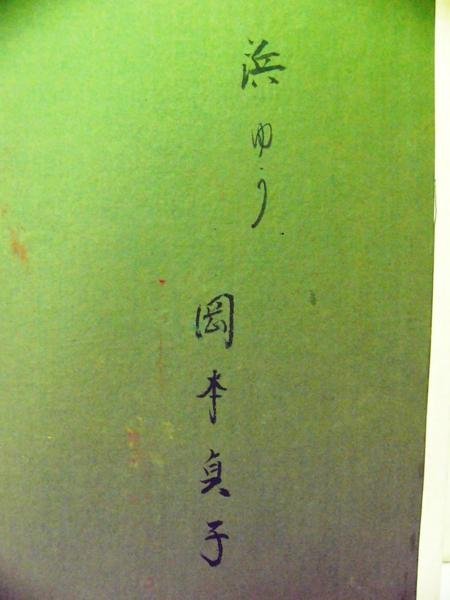 浜ゆう
岡本貞子